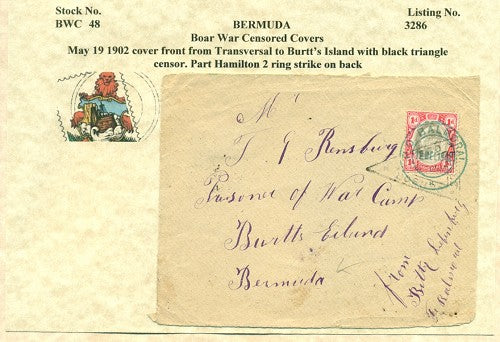 Stock No.
BWC 48
BERMUDA
Listing No.
3286
Boar War Censored Covers
May 19 1902 cover front from Transversal to Burtt's Island with black triangle
censor. Part Hamilton 2 ring strike on back
Mr
T J Rensburg
Prisoner of War Camp
Burtts Eiland
Bermuda
from
Bettz
Balmoral
1d
1d